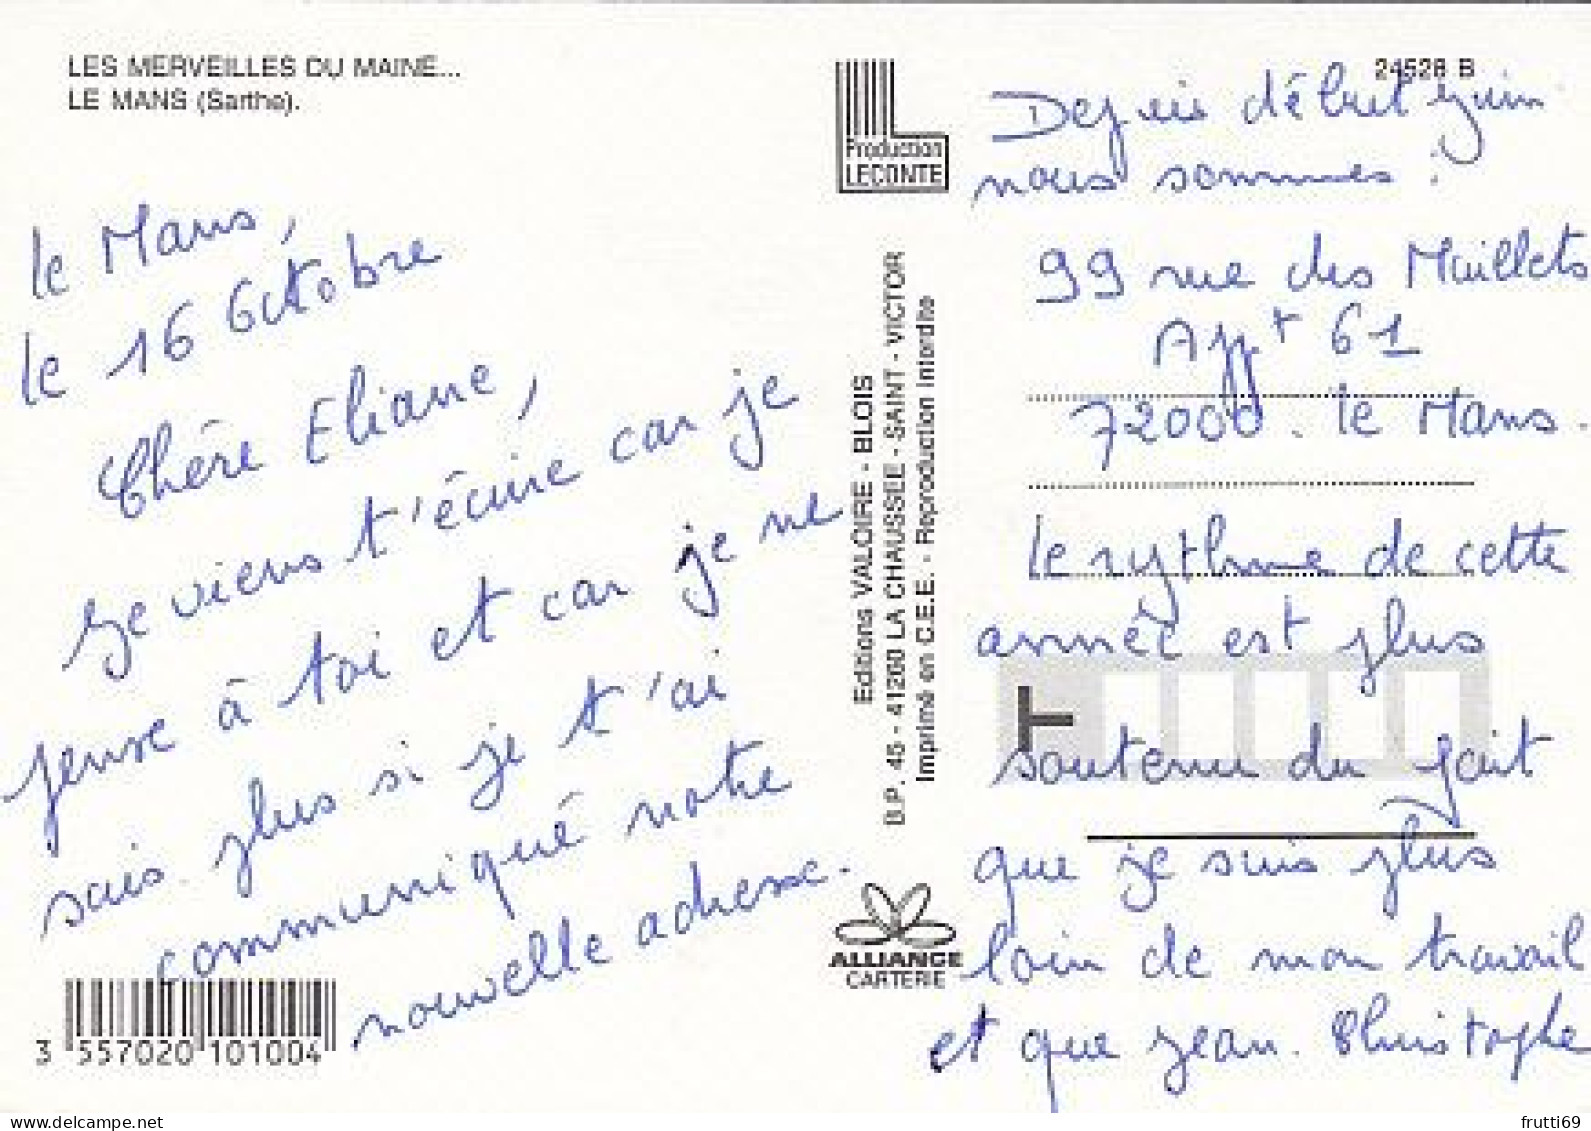 LES MERVEILLES DU MAINE...
LE MANS (Sarthe).
le Mans,
le 16 Octobre
Chère Eliane,
Je viens t'écrire car je
pense à toi et car je ne
sais plus si je t'ai
communiqué notre
nouvelle adresse.
3 557020 101004
Production
LECONTE
Editions VALOIRE - BLOIS
B.P. 45 - 41260 LA CHAUSSEE - SAINT - VICTOR
Imprimé en C.E.E. - Reproduction interdite
ALLIANCE
CARTERIE
24528 B
Depuis début Juin
nous sommes :
99 rue des Maillets
Appt 61
72000. Le Mans.
Le rythme de cette
année est plus
soutenu du fait
que je suis plus
loin de mon travail
et que Jean. Christophe
www.delcampe.net
frutti69